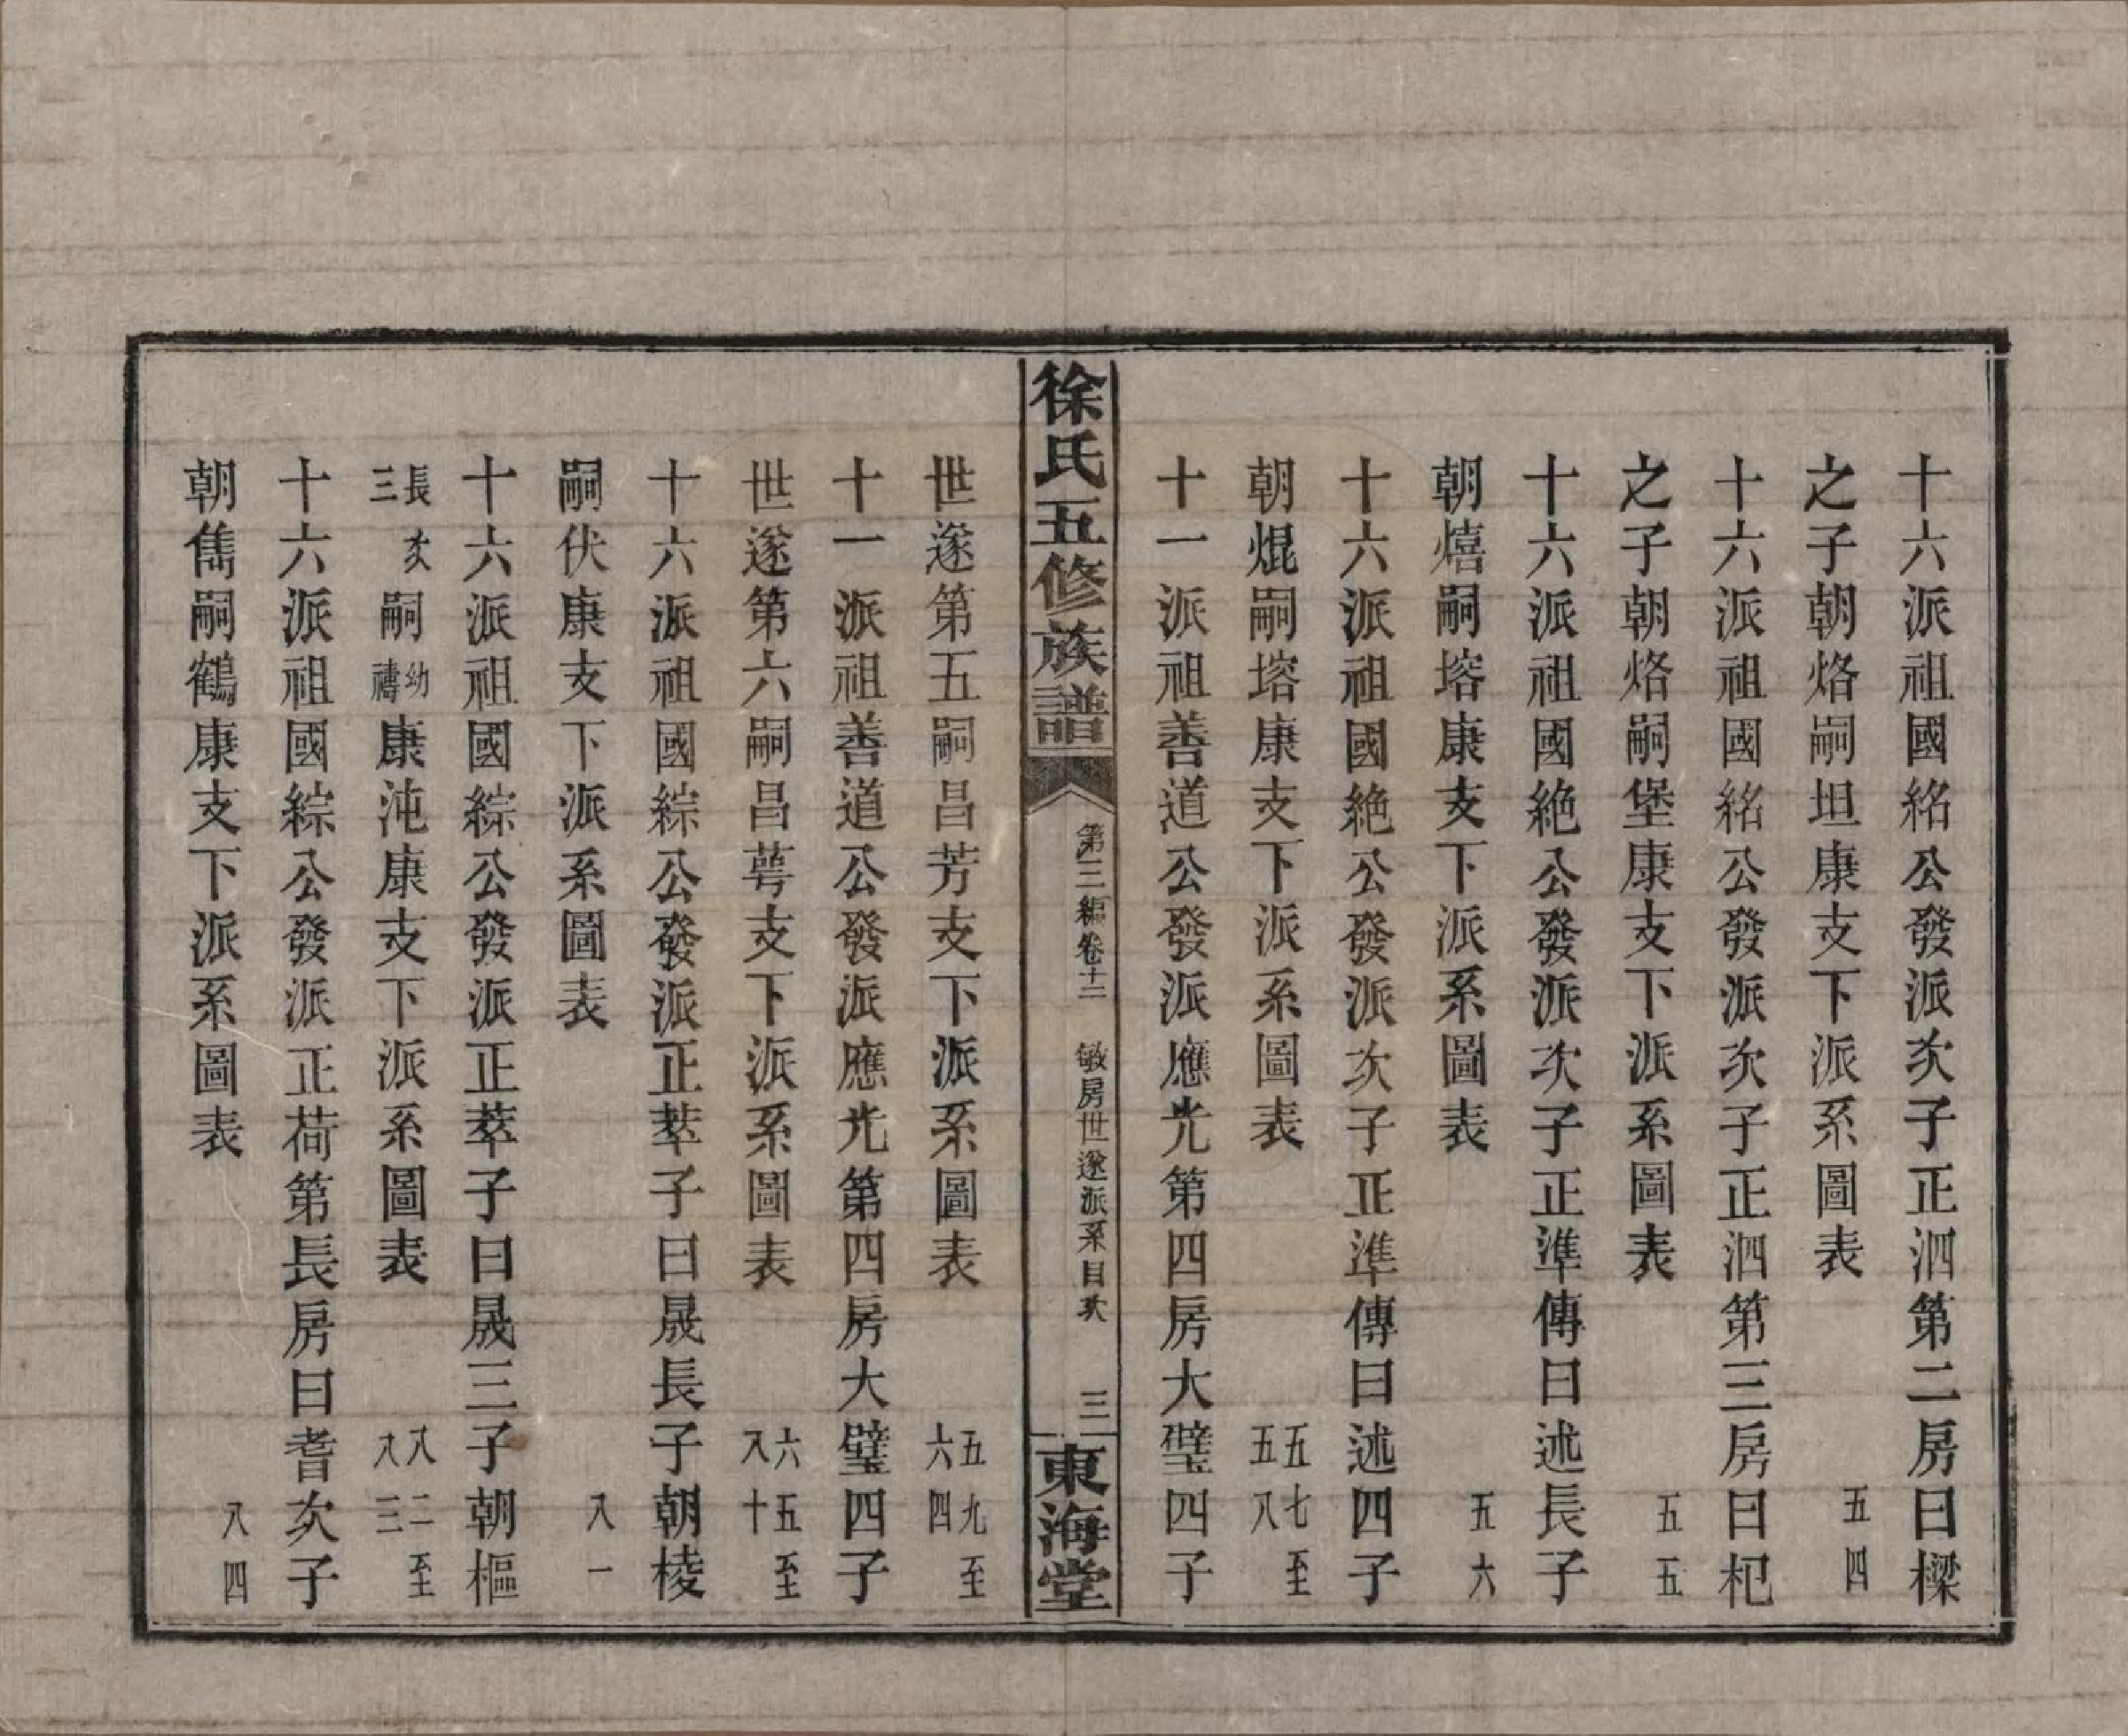 十六派祖國綹公發派次子正泗第二房曰樑
之子朝烙嗣坦康支下派系圖表　五四
十六派祖國綹公發派次子正泗第三房曰杞
之子朝烙嗣堡康支下派系圖表　五五
十六派祖國絶公發派次子正準傳曰述長子
朝熺嗣塎康支下派系圖表　五六
十六派祖國絶公發派次子正準傳曰述四子
朝焜嗣塎康支下派系圖表　五七至五八
十一派祖善道公發派應光第四房大璧四子
徐氏五修族譜　第三編卷十二　敏房世邃派系目次　三　東海堂
世邃第五嗣昌芳支下派系圖表　五九至六四
十一派祖善道公發派應光第四房大璧四子
世邃第六嗣昌萼支下派系圖表　六五至八十
十六派祖國綜公發派正萃子曰晟長子朝棱
嗣伏康支下派系圖表　八一
十六派祖國綜公發派正萃子曰晟三子朝樞
長次三嗣幼禱康沌康支下派系圖表　八二至八三
十六派祖國綜公發派正荷第長房曰耆次子
朝雋嗣鶴康支下派系圖表　八四